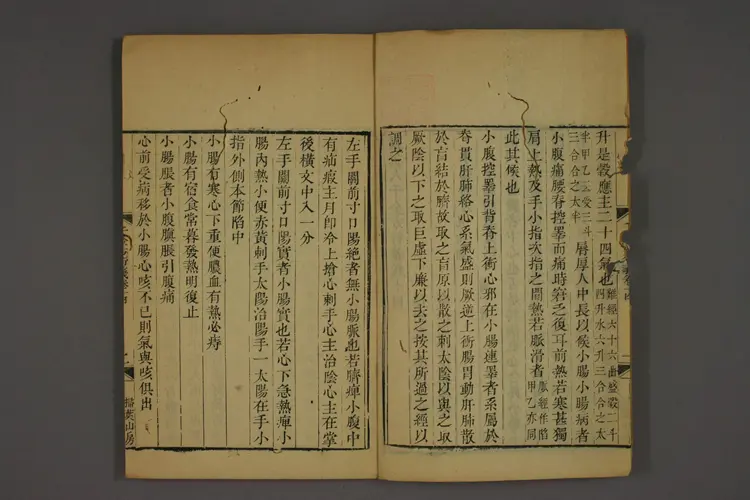 升是穀應主二十四氣也難經大十六曲盛穀二斗四升水六升三合合之大
半甲乙云受三斗三合合之太半脣厚人中長以候小腸小腸病者
小腹痛腰脊控睪而痛時窘之復耳前熱若寒甚獨
肩上熱及手小指次指之間熱若脈滑者脈經作陷甲乙亦同
此其候也
小腹控睪引背脊上衝心邪在小腸連睪者系屬於
脊貫肝肺絡心系氣盛則厥逆上衝腸胃動肝肺散
於肓結於臍故取之肓原以散之刺太陰以與之取
厥陰以下之取巨虛下廉以去之按其所過之經以
調之
左手關前寸口陽絶者無小腸脈也若臍痺小腹中
有疝瘕主月即冷上搶心刺手心主治陰心主在掌
後横文中入一分
左手關前寸口陽實者小腸實也若心下急熱痺小
腸內熱小便赤黃刺手太陽治陽手一太陽在手小
指外側本節陷中
小腸有寒心下重便膿血有熱必痔
小腸有宿食常暮發熱明復止
小腸脹者小腹䐜脹引腹痛
心前受病移於小腸心咳不已則氣與咳俱出
二
掃葉山房